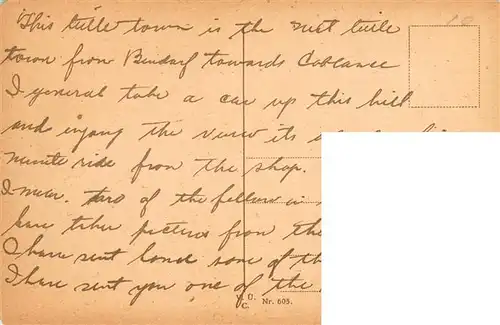 This little town is the next little
town from Bendorf towards Coblance
I general take a car up this hill
and enjoy the view its
minute ride from the shop.
I mean. two of the fellow in
have taken pictures from the
I have sent home some of th
I have sent you one of the
D. U.
C. Nr. 605.